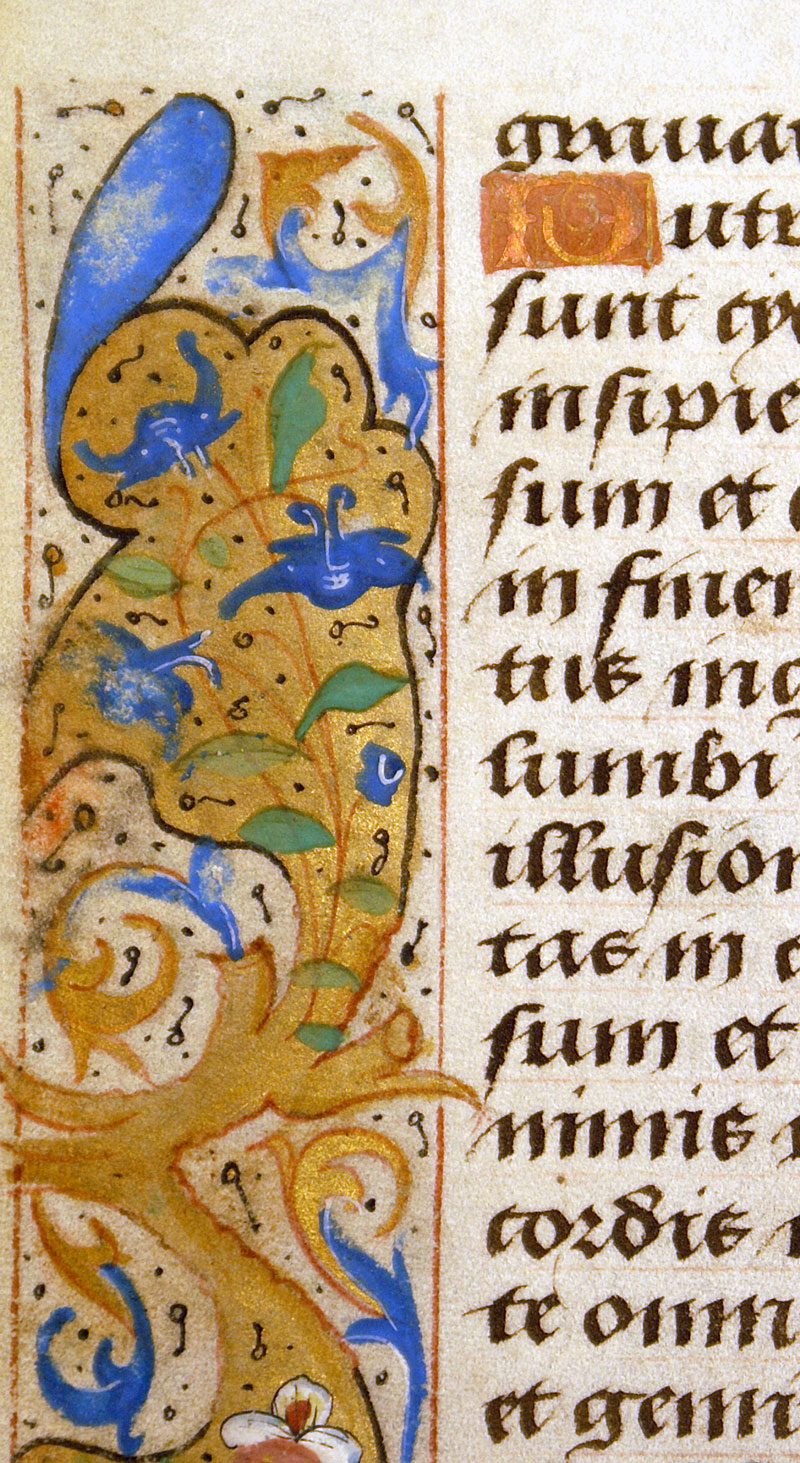 graua
Putr
sunt cy
insipie
sum et c
in fine
tus ing
lumbi
illusion
tas in c
sum et
nimis
cordis
te omn
et gemi